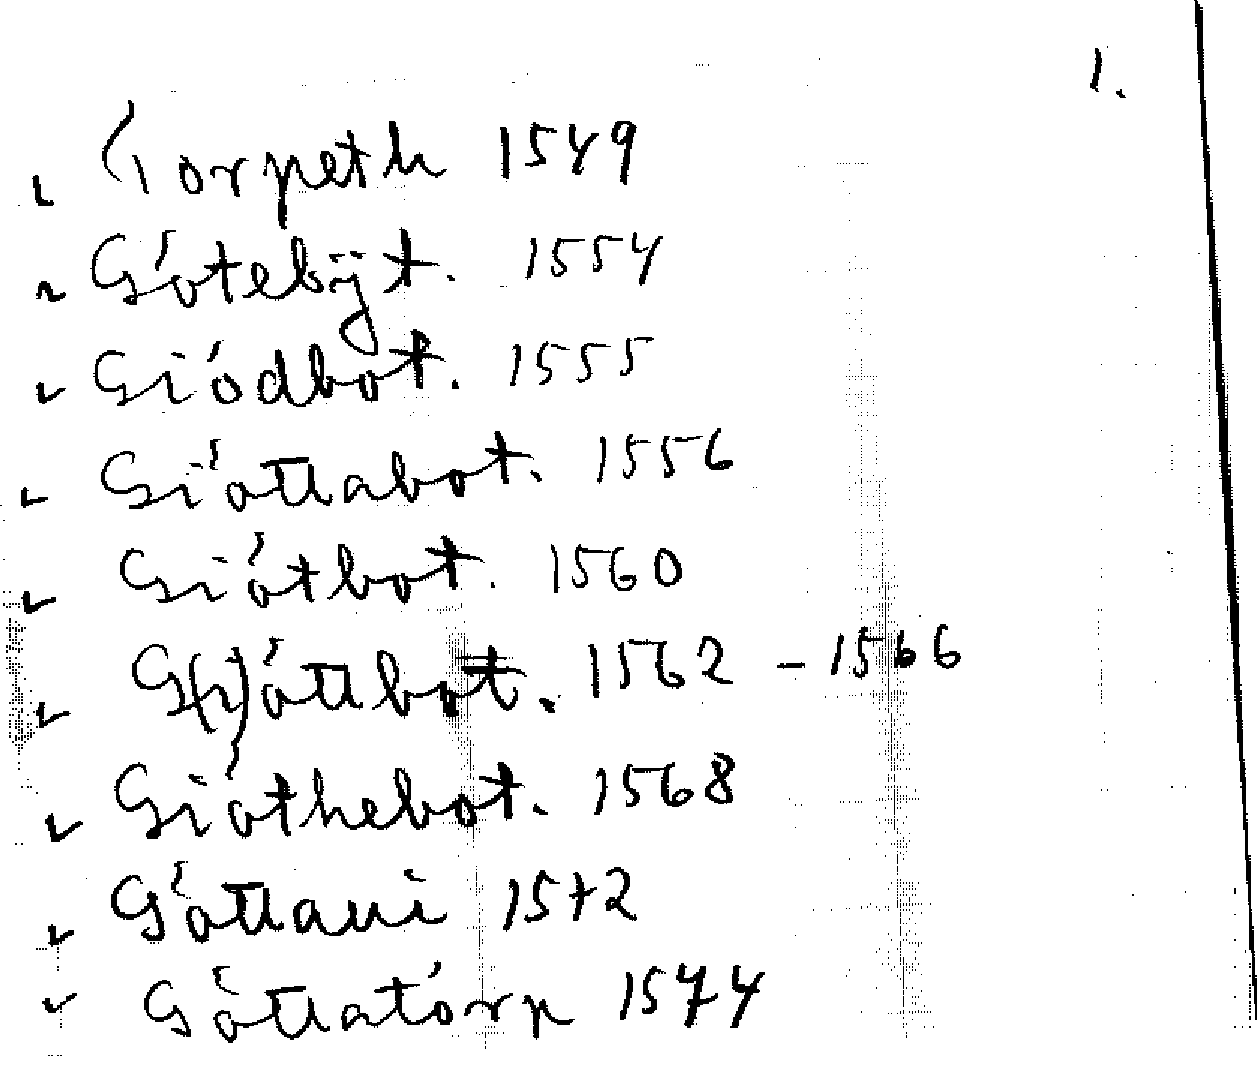 1.
Torpeth 1549
Götebÿt. 1554
Giódbot. 1555
Gióttabot. 1556
Giótbot. 1560
G(i)óttbot. 1562 - 1566
Gióthebot. 1568
Góttaui 1572
Góttatórp 1574